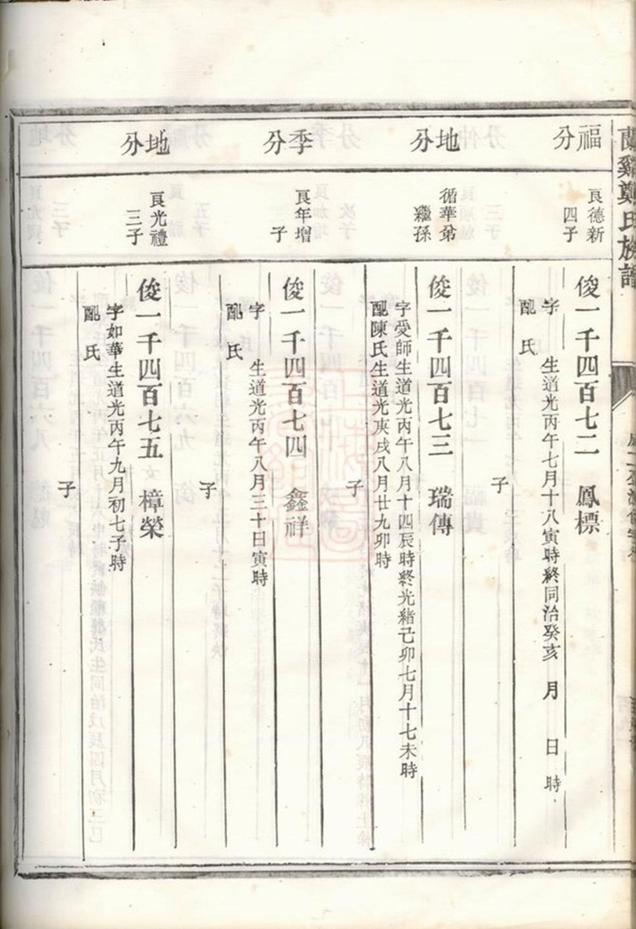 蘭谿鄭氏族譜
福分
良德新
四子
俊一千四百七二　鳳標
字　生道光丙午七月十八寅時終同治癸亥　月　日　時
配　氏
子
地分
循華弟
繼孫
俊一千四百七三　瑞傳
字愛師生道光丙午八月十四辰時終光緒己卯七月十七未時
配陳氏生道光庚戌八月廿九卯時
子
季分
良年增
子
俊一千四百七四　鑫祥
字　生道光丙午八月三十日寅時
配　氏
子
地分
良光禮
三子
俊一千四百七五　樟榮
字如華生道光丙午九月初七子時
配　氏
子